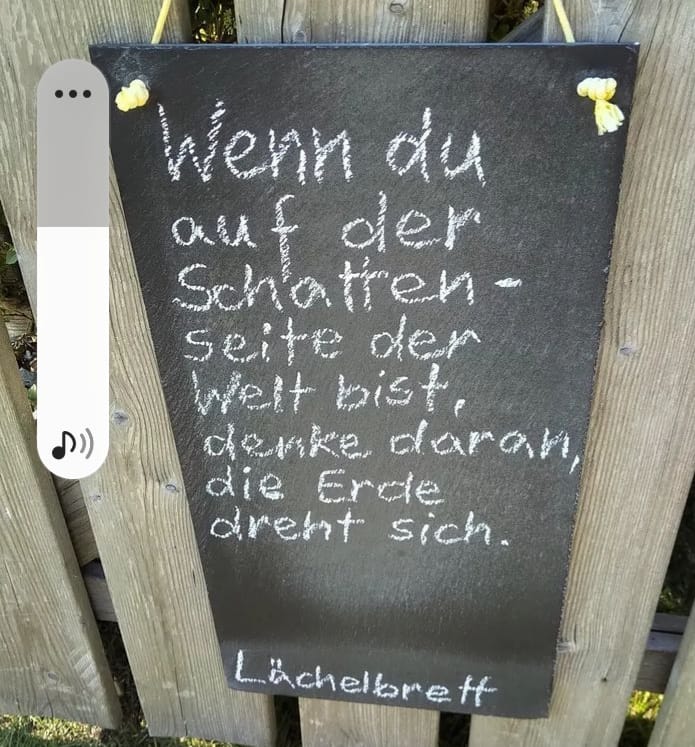 Wenn du
auf der
Schatten-
seite der
Welt bist,
denke daran,
die Erde
dreht sich.
Lächelbrett